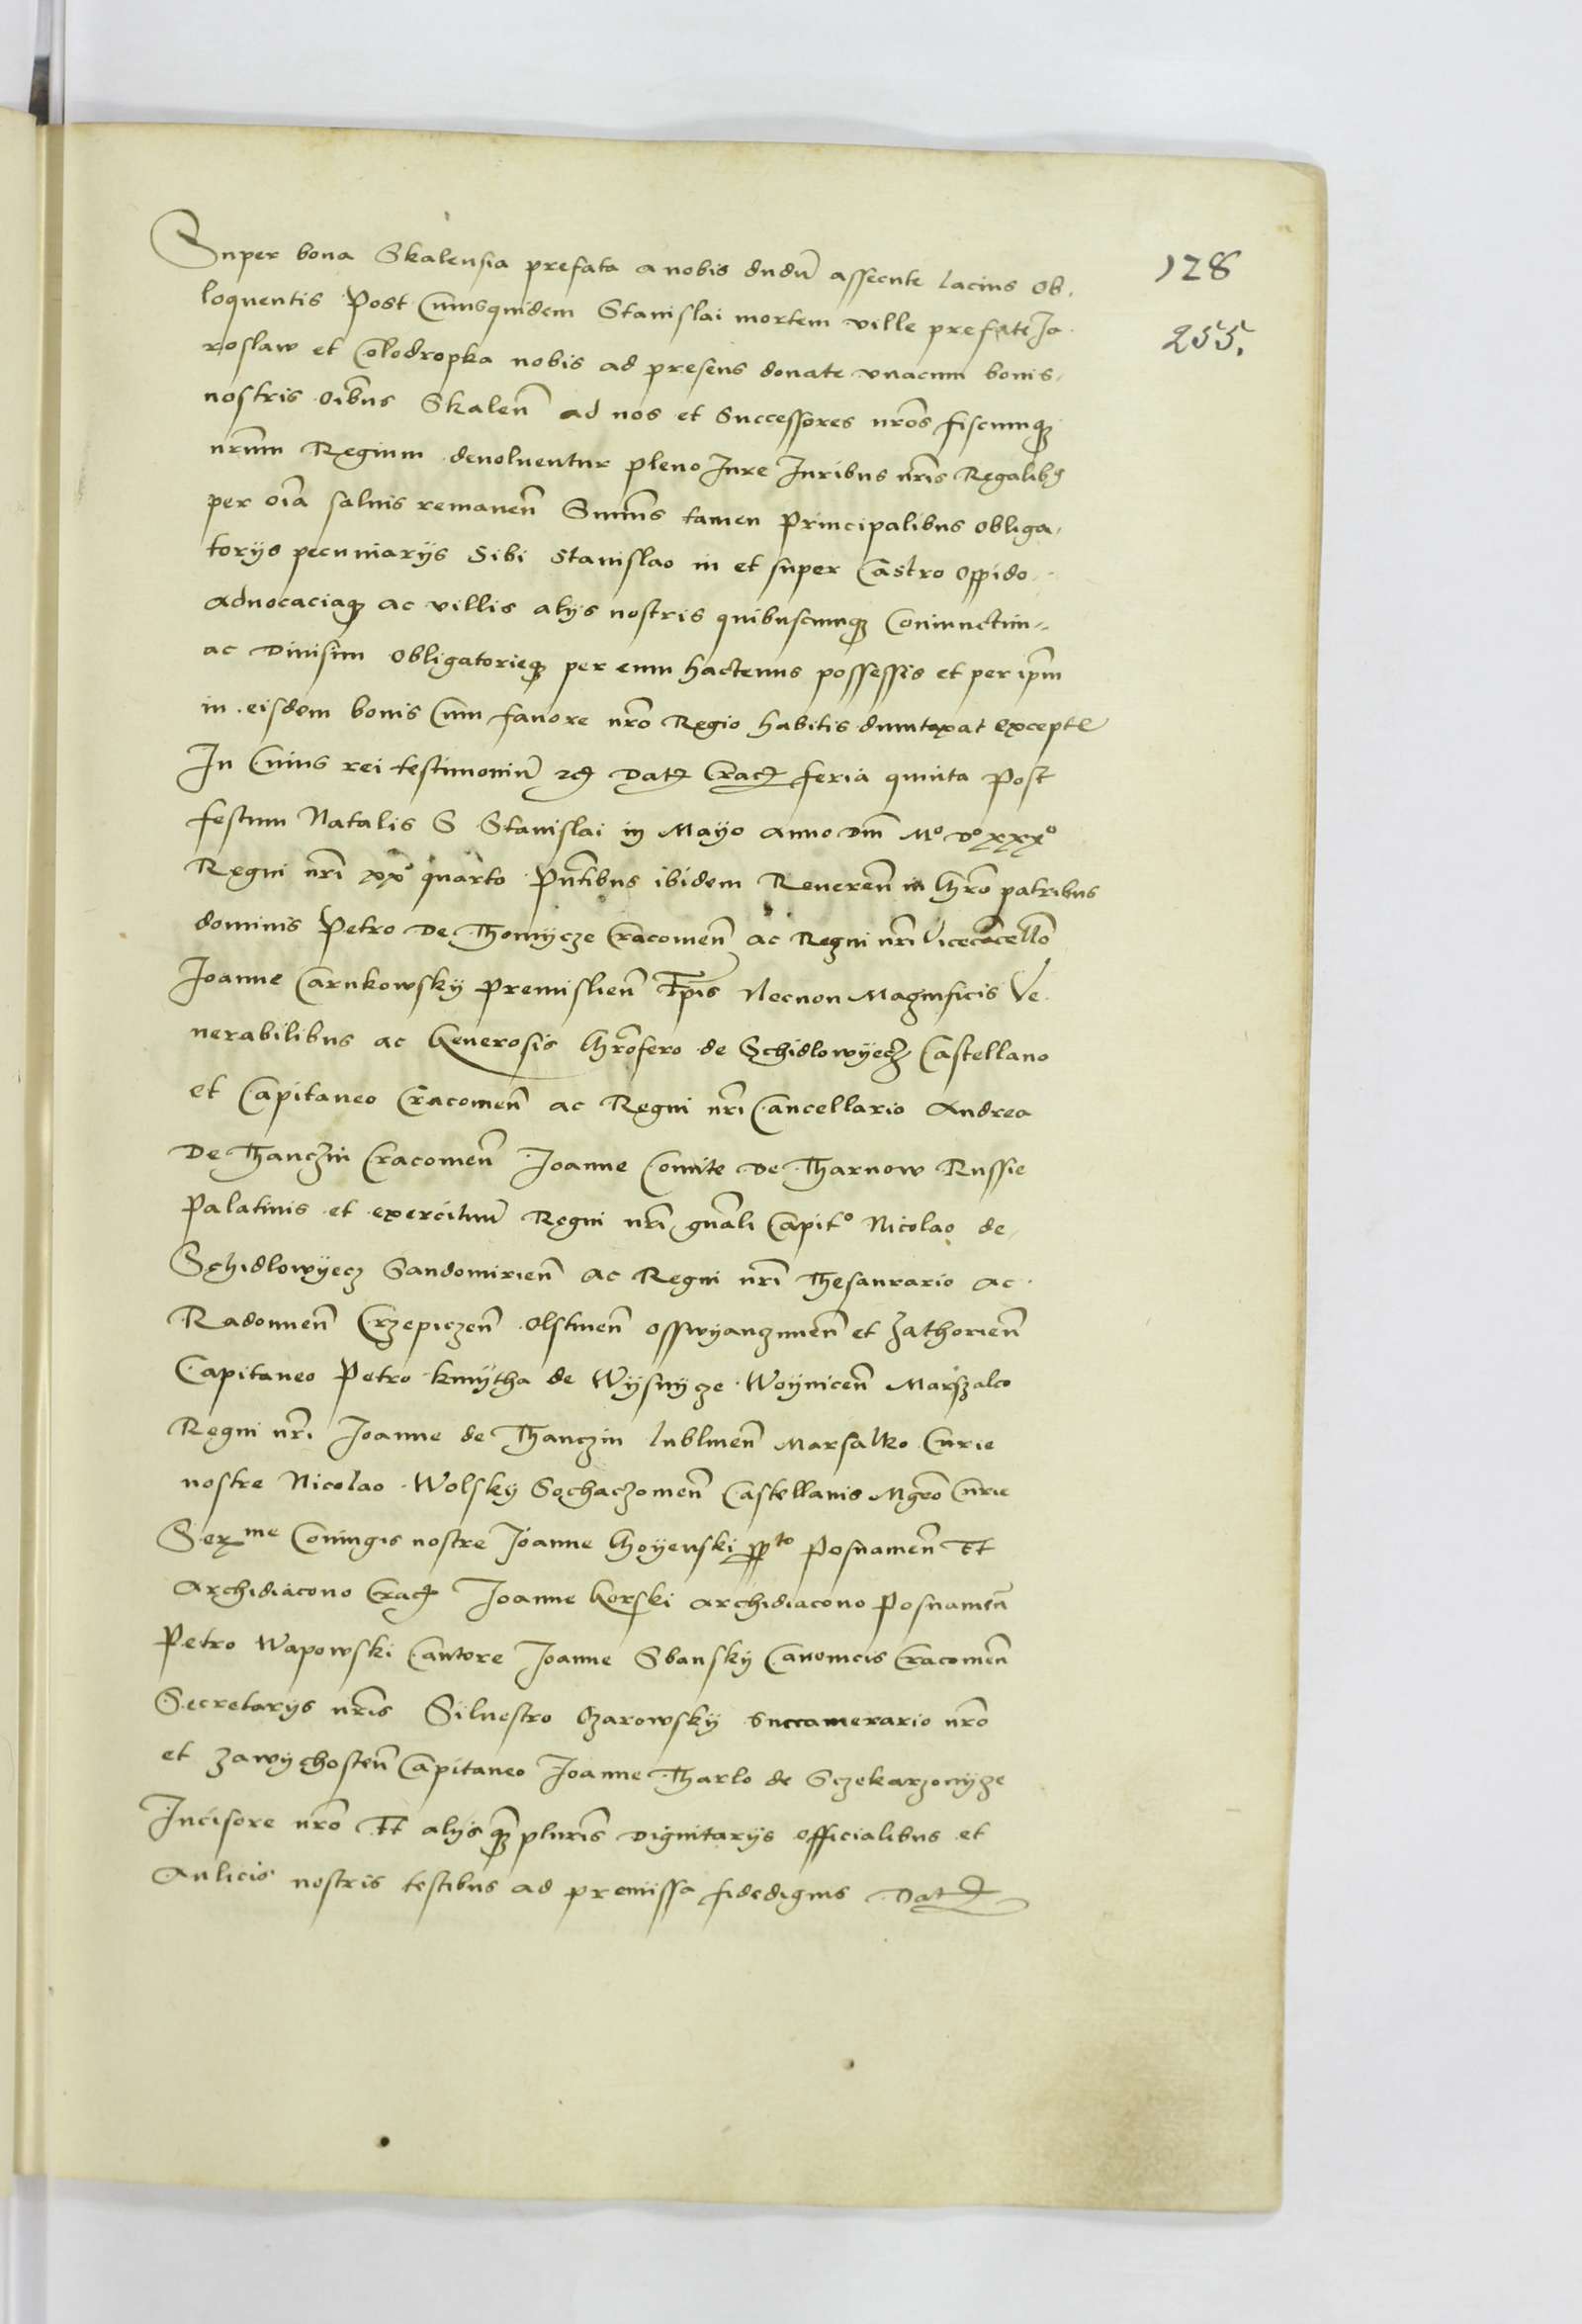 128
255.
Super bona Skalensia prefata a nobis dudū assecute lacius ob-
loquentis Post Cuiusquidem Stanislai mortem ville prefate Ja-
roslaw et Colodropka nobis ad presens donate vnacum bonis
nostris oībus Skaleñ ad nos et Successores nr̄os fiscumqꝫ
nr̄um Regium deuoluentur pleno Jure Juribus nr̄is Regalibꝰ
per oīa saluis remaneñ Summ̄s tamen Principalibus obliga-
torijs pecuniarijs Sibi Stanislao in et super Castro Oppido
aduocaciaqꝫ ac villis alijs nostris quibuscumqꝫ Coniunctim
ac Diuisim obligatorieqꝫ per eum hactenus possessis et per ip̄m
in eisdem bonis Cum fauore nr̄o Regio habitis dumtaxat exceptꝭ
In Cuius rei testimoniū ꝛcꝫ Datꝭ Cracꝭ feria quinta Post
festum Natalis S Stanislai in Mayo anno Dn̄i Mº Dº xxxº
Regni nr̄i xxº quarto Pn̄tibus ibidem Reuereñ in Chr̄o patribus
dominis Petro De Thomycze Cracouieñ ac Regni nr̄i Vicecancell̄o
Joanne Carnkowsky Premislieñ Ep̄is Necnon Magnificis Ve-
nerabilibus ac Generosis Chr̄ofero de Schidlowyecz Castellano
et Capitaneo Cracouieñ ac Regni nr̄i Cancellario Andrea
De Thanczin Cracouieñ Joanne Comite De Tharnow Russie
Palatinis et exercituū Regni nr̄i gn̄ali Capitº Nicolao de
Schidlowyecz Sandomirieñ ac Regni nr̄i Thesaurario ac
Radomieñ Crzepiczeñ Olstineñ Osswyanzimeñ et Zathorieñ
Capitaneo Petro Kmytha de Wysnycze Woyniceñ Marszalco
Regni nr̄i Joanne de Thanczin Lublineñ Marsalko Curie
nostre Nicolao Wolsky Sochaczouieñ Castellanis Mgr̄o Curie
Serme Coniugis nostre Joanne Choyenski ppto Posnanieñ Et
Archidiacono Cracꝭ Joanne Gorski archidiacono Posnanieñ
Petro Wapowski Cantore Joanne Sbansky Canonicis Cracouieñ
Secretarys nr̄is Siluestro Ozarowsky Succamerario nr̄o
et Zawychosteñ Capitaneo Joanne Tharlo de Sczekarzowycze
Incisore nr̄o Et alijs qꝫ̄ pluris̄ Dignitarijs officialibus et
Aulicis nostris testibus ad premissa fidedignis Datꝭ